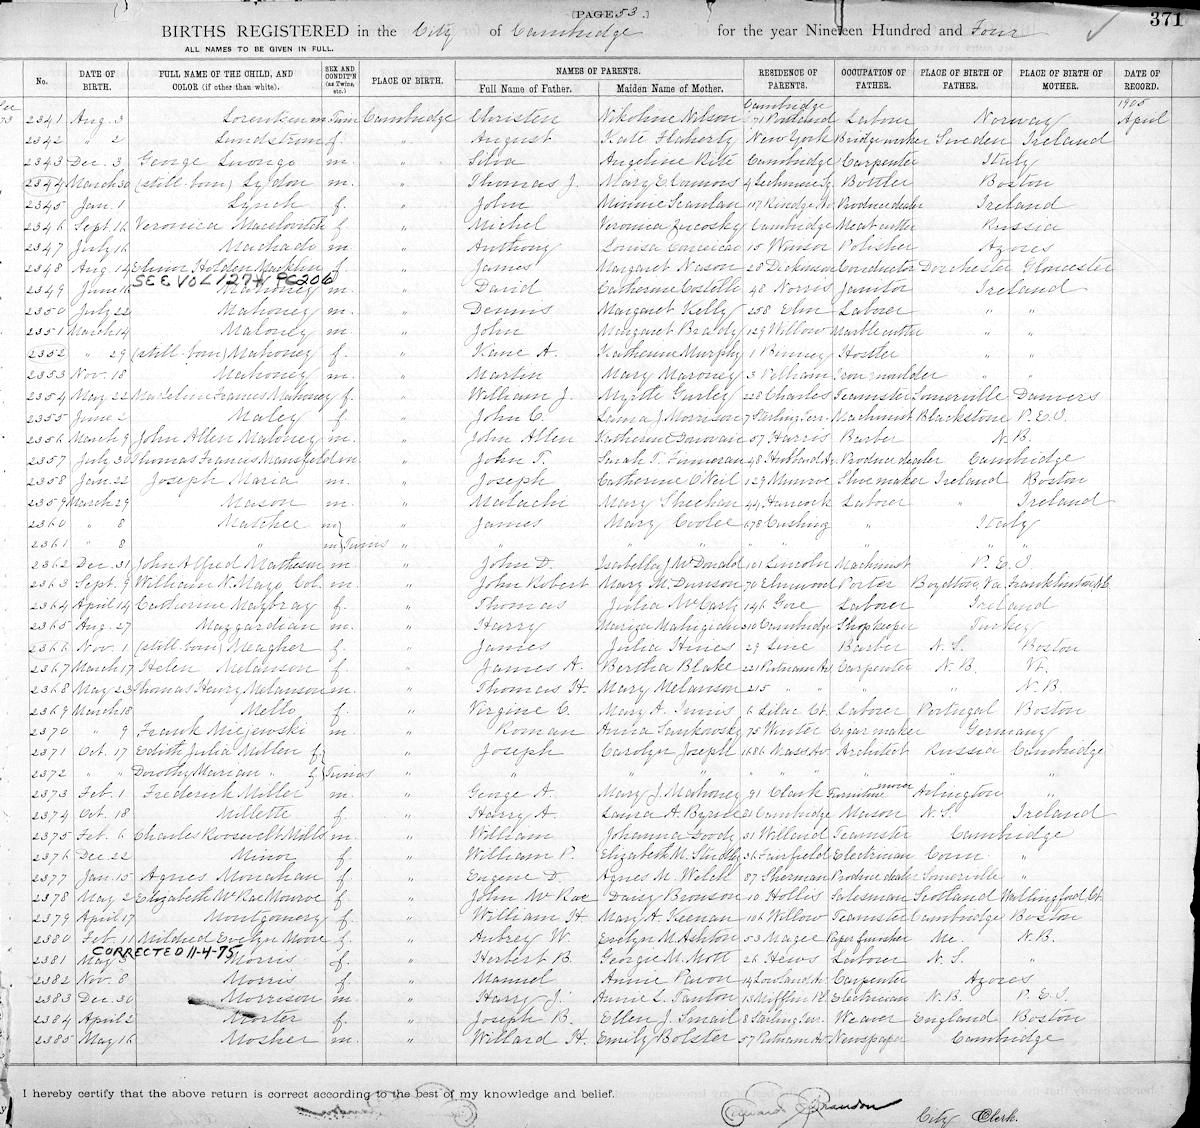 [PAGE 53.]
371
BIRTHS REGISTERED in the City of Cambridge for the year Nineteen Hundred and Four
ALL NAMES TO BE GIVEN IN FULL.
No. DATE OF BIRTH. FULL NAME OF THE CHILD, AND COLOR (if other than white). SEX AND CONDIT'N (as Twins, etc.) PLACE OF BIRTH. NAMES OF PARENTS. Full Name of Father. Maiden Name of Mother. RESIDENCE OF PARENTS. OCCUPATION OF FATHER. PLACE OF BIRTH OF FATHER. PLACE OF BIRTH OF MOTHER. DATE OF RECORD.
Cambridge 1905
2341 Aug. 3 Lorentsen m. Cambridge Christen Nikoline Nilson 71 Portland Laborer Norway April
2342 " 2 Lundstrom f. " August Kate Flaherty New York Bridgeworker Sweden Ireland
2343 Dec. 3 George Luongo m. " Silva Angeline Cambridge Carpenter Italy
2344 March 30 (still born) Lydon m. " Thomas J. Mary E. Connors 4 Lechmere Sq. Bottler Boston
2345 Jan. 1 Lynch f. " John Minnie Scanlan 117 Rindge Av Produce dealer Ireland
2346 Sept. 16 Veronica f. " Michel Veronica Cambridge Meat cutter Russia
2347 July 16 Machado m " Anthony Louisa 15 Windsor Polisher Azores
2348 Aug. 14 Elinor Holden Macklin f. " James Margaret Nason 28 Dickinson Conductor Dorchester Gloucester
SEE VOL 727 PG 206
2349 June 16 Mahoney m. " David Catherine Costello 48 Norris Janitor Ireland
2350 July 22 Mahoney m. " Dennis Margaret Kelly 258 Elm Laborer " "
2351 March 14 Maloney m. " John Margaret Brady 129 Willow Marble cutter " "
2352 " 29 (still born) Mahoney f. " Kane A. Katherine Murphy 1 Binney Hostler " "
2353 Nov. 18 Mahoney m. " Martin Mary Maroney 3 Pelham Iron moulder " "
2354 May 22 Madeline Frances Mahoney f. " William J. Myrtle Gurley 228 Charles Teamster Somerville Danvers
2355 June 2 Maley f. " John C. Laura J. Morrison 7 Sterling Terr. Machinist Blackstone P.E.I.
2356 March 9 John Allen Maloney m. " John Allen Katherine Donovan 57 Harris Barber N.B.
2357 July 30 Thomas Francis Mansfield m. " John T. Sarah T. Finneran 48 Hubbard Av. Produce dealer Cambridge
2358 Jan. 22 Joseph Maria m. " Joseph Catherine O'Neil 129 Munroe Shoemaker Ireland Boston
2359 March 29 Mason m. " Malachi Mary Sheehan 44 Hancock Laborer " Ireland
2360 " 8 m " James Mary Coolee 178 Cushing " Italy
2361 " 8 " m Twins " " " " " "
2362 Dec. 31 John Alfred Matheson m. " John D. Isabella J. McDonald 101 Lincoln Machinist P.E.I.
2363 Sept. 9 William N. Mayo Col. m. " John Robert Mary M. Dunson 70 Elmwood Porter Boydton, Va. Franklinton N.C.
2364 April 14 Catherine Maybray f. " Thomas Julia McCarty 146 Gore Laborer Ireland
2365 Aug. 27 Mazgardian m. " Harry 210 Cambridge Shopkeeper Turkey
2366 Nov. 1 (still born) Meagher f. " James Julia Hines 29 Line Barber N.S. Boston
2367 March 17 Helen Melanson f. " James A. Bertha Blake 221 Putnam Av Carpenter N.B. Vt.
2368 May 23 Thomas Henry Melanson m. " Thomas H. Mary Melanson 215 " " " N.B.
2369 March 18 Mello f. " Virgine C. Mary A. Innis 6 Lilac Ct. Laborer Portugal Boston
2370 " 9 Frank Miejewski m. " Roman Anna Sankowsky 75 Winter Cigar maker Germany
2371 Oct. 17 Edith Julia Millen f. " Joseph Carolyn Joseph 1686 Mass Av Architect Russia Cambridge
2372 " " Dorothy Marian " f. Twins " " " " " " "
2373 Feb. 1 Frederick Miller m. " George A. Mary J. Mahoney 91 Clark Furniture mover Arlington "
2374 Oct. 18 Millette f. " Harry A. Laura A. Byrne 21 Cambridge Mason N.S. Ireland
2375 Feb. 6 Charles Roosevelt Mills m. " William Johanna Goody 31 Willard Teamster Cambridge
2376 Dec. 22 Minor f. " William P. Elizabeth M. Studley 36 Fairfield Electrician Conn. "
2377 Jan. 15 Agnes Monahan f. " Eugene D. Agnes M. Welch 87 Sherman Produce dealer Somerville "
2378 May 2 Elizabeth McRae Monroe f. " John McRae Daisy Bronson 10 Hollis Salesman Scotland Wallingford Ct.
2379 April 17 Montgomery f. " William H. Mary A. Keenan 106 Willow Teamster Cambridge Boston
2380 Feb. 11 Mildred Evelyn Moore f. " Aubrey W. Evelyn M. Ashton 53 Magee Paper finisher Me. N.B.
CORRECTED 11-4-75
2381 May 3 Morris f. " Herbert B. Georgie M. Mott 26 Hews Laborer N.S. "
2382 Nov. 8 Morris f. " Manuel Annie Pavon 14 Lowland Av. Carpenter Azores
2383 Dec. 30 Morrison m. " Harry J. Annie L. Tanton 13 Mifflin Pl. Electrician N.B. P.E.I.
2384 April 2 Morter f. " Joseph B. Ellen J. Smail 8 Sterling Terr. Weaver England Boston
2385 May 16 Mosher m. " Willard H. Emily Bolster 57 Putnam Av Newspaper Cambridge
I hereby certify that the above return is correct according to the best of my knowledge and belief.
Edward J. Brandon
City Clerk.